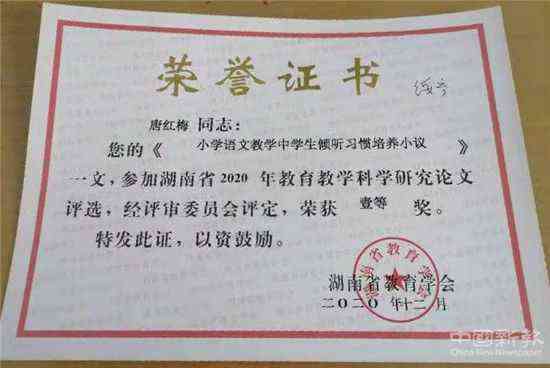 荣誉证书
唐红梅 同志：
您的《 小学语文教学中学生倾听习惯培养小议 》
一文，参加湖南省2020年教育教学科学研究论文
评选，经评审委员会评定，荣获 壹等 奖。
特发此证，以资鼓励。
湖南省教育学会
二〇二〇年十二月
湖南省教育学会
中國新歌